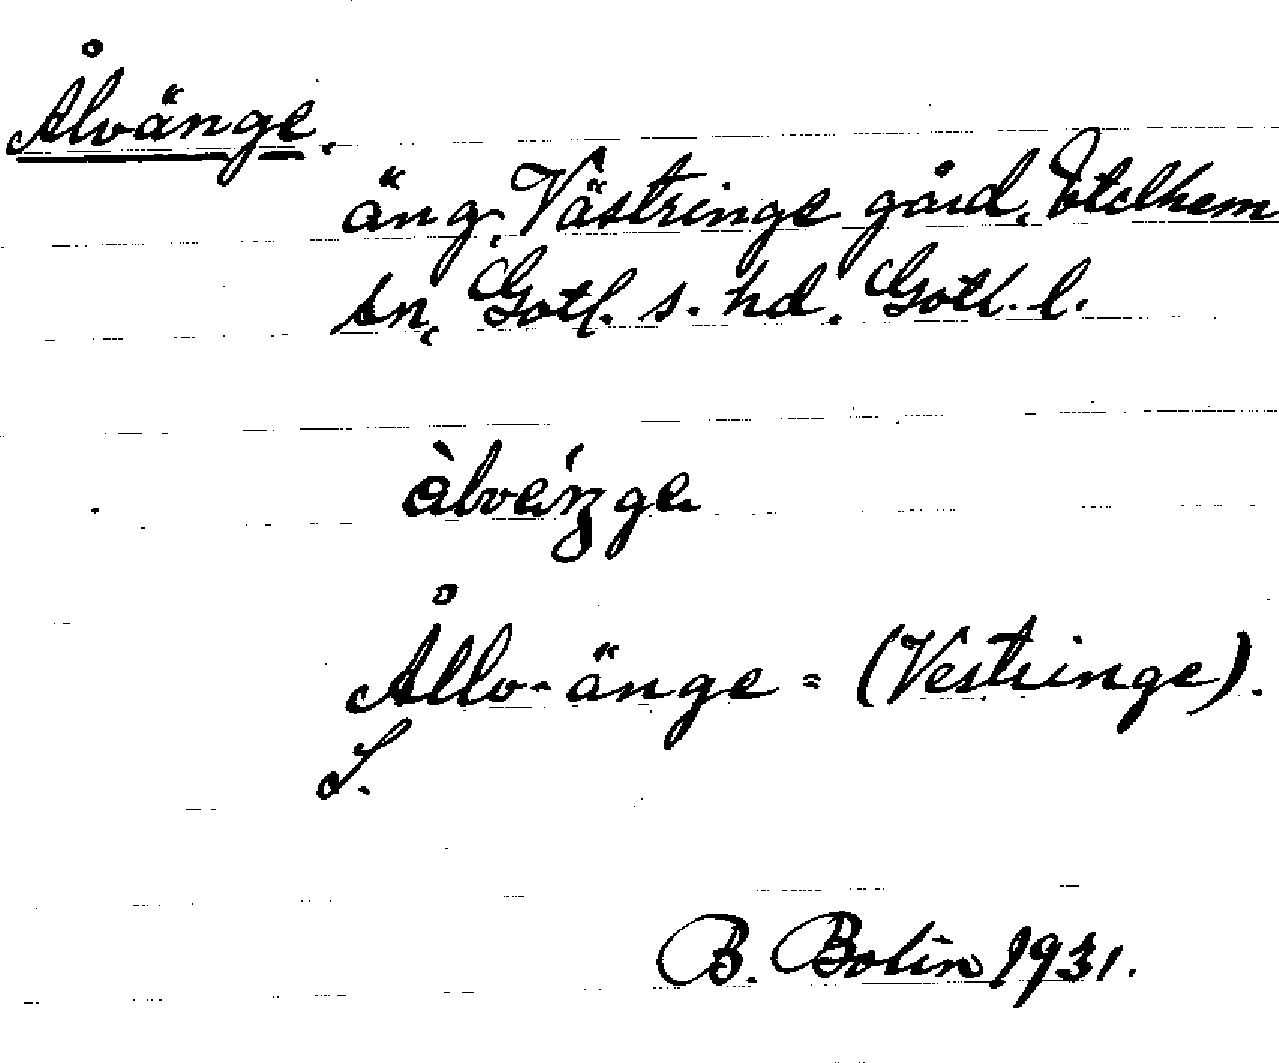 Ålvänge.
äng, Västringe gård, Etelhem
sn, Gotl. s. hd. Gotl. l.
Ållv-änge = (Vestringe).
S.
B. Bolin 1931.